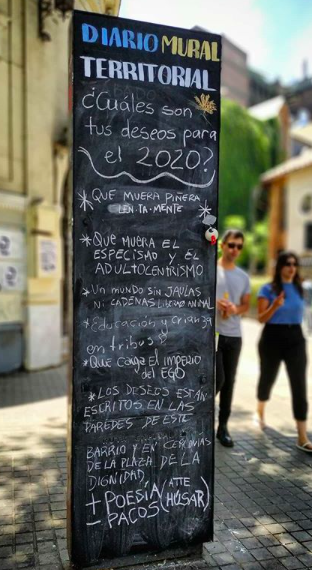 DIARIO MURAL
TERRITORIAL
¿Cuáles son
tus deseos para
el 2020?
* QUE MUERA PIÑERA
LEN·TA·MENTE *
* QUE MUERA EL
ESPECISMO Y EL
ADULTOCENTRISMO
* UN MUNDO SIN JAULAS
NI CADENAS LIBERTAD ANIMAL
* Educación y crianza
en tribus
* Que caiga el imperio
del EGO
* LOS DESEOS ESTÁN
ESCRITOS EN LAS
PAREDES DE ESTE
BARRIO Y EN CERCANIAS
DE LA PLAZA DE LA
DIGNIDAD
+ POESÍA (ATTE
- PACOS HÚSAR)